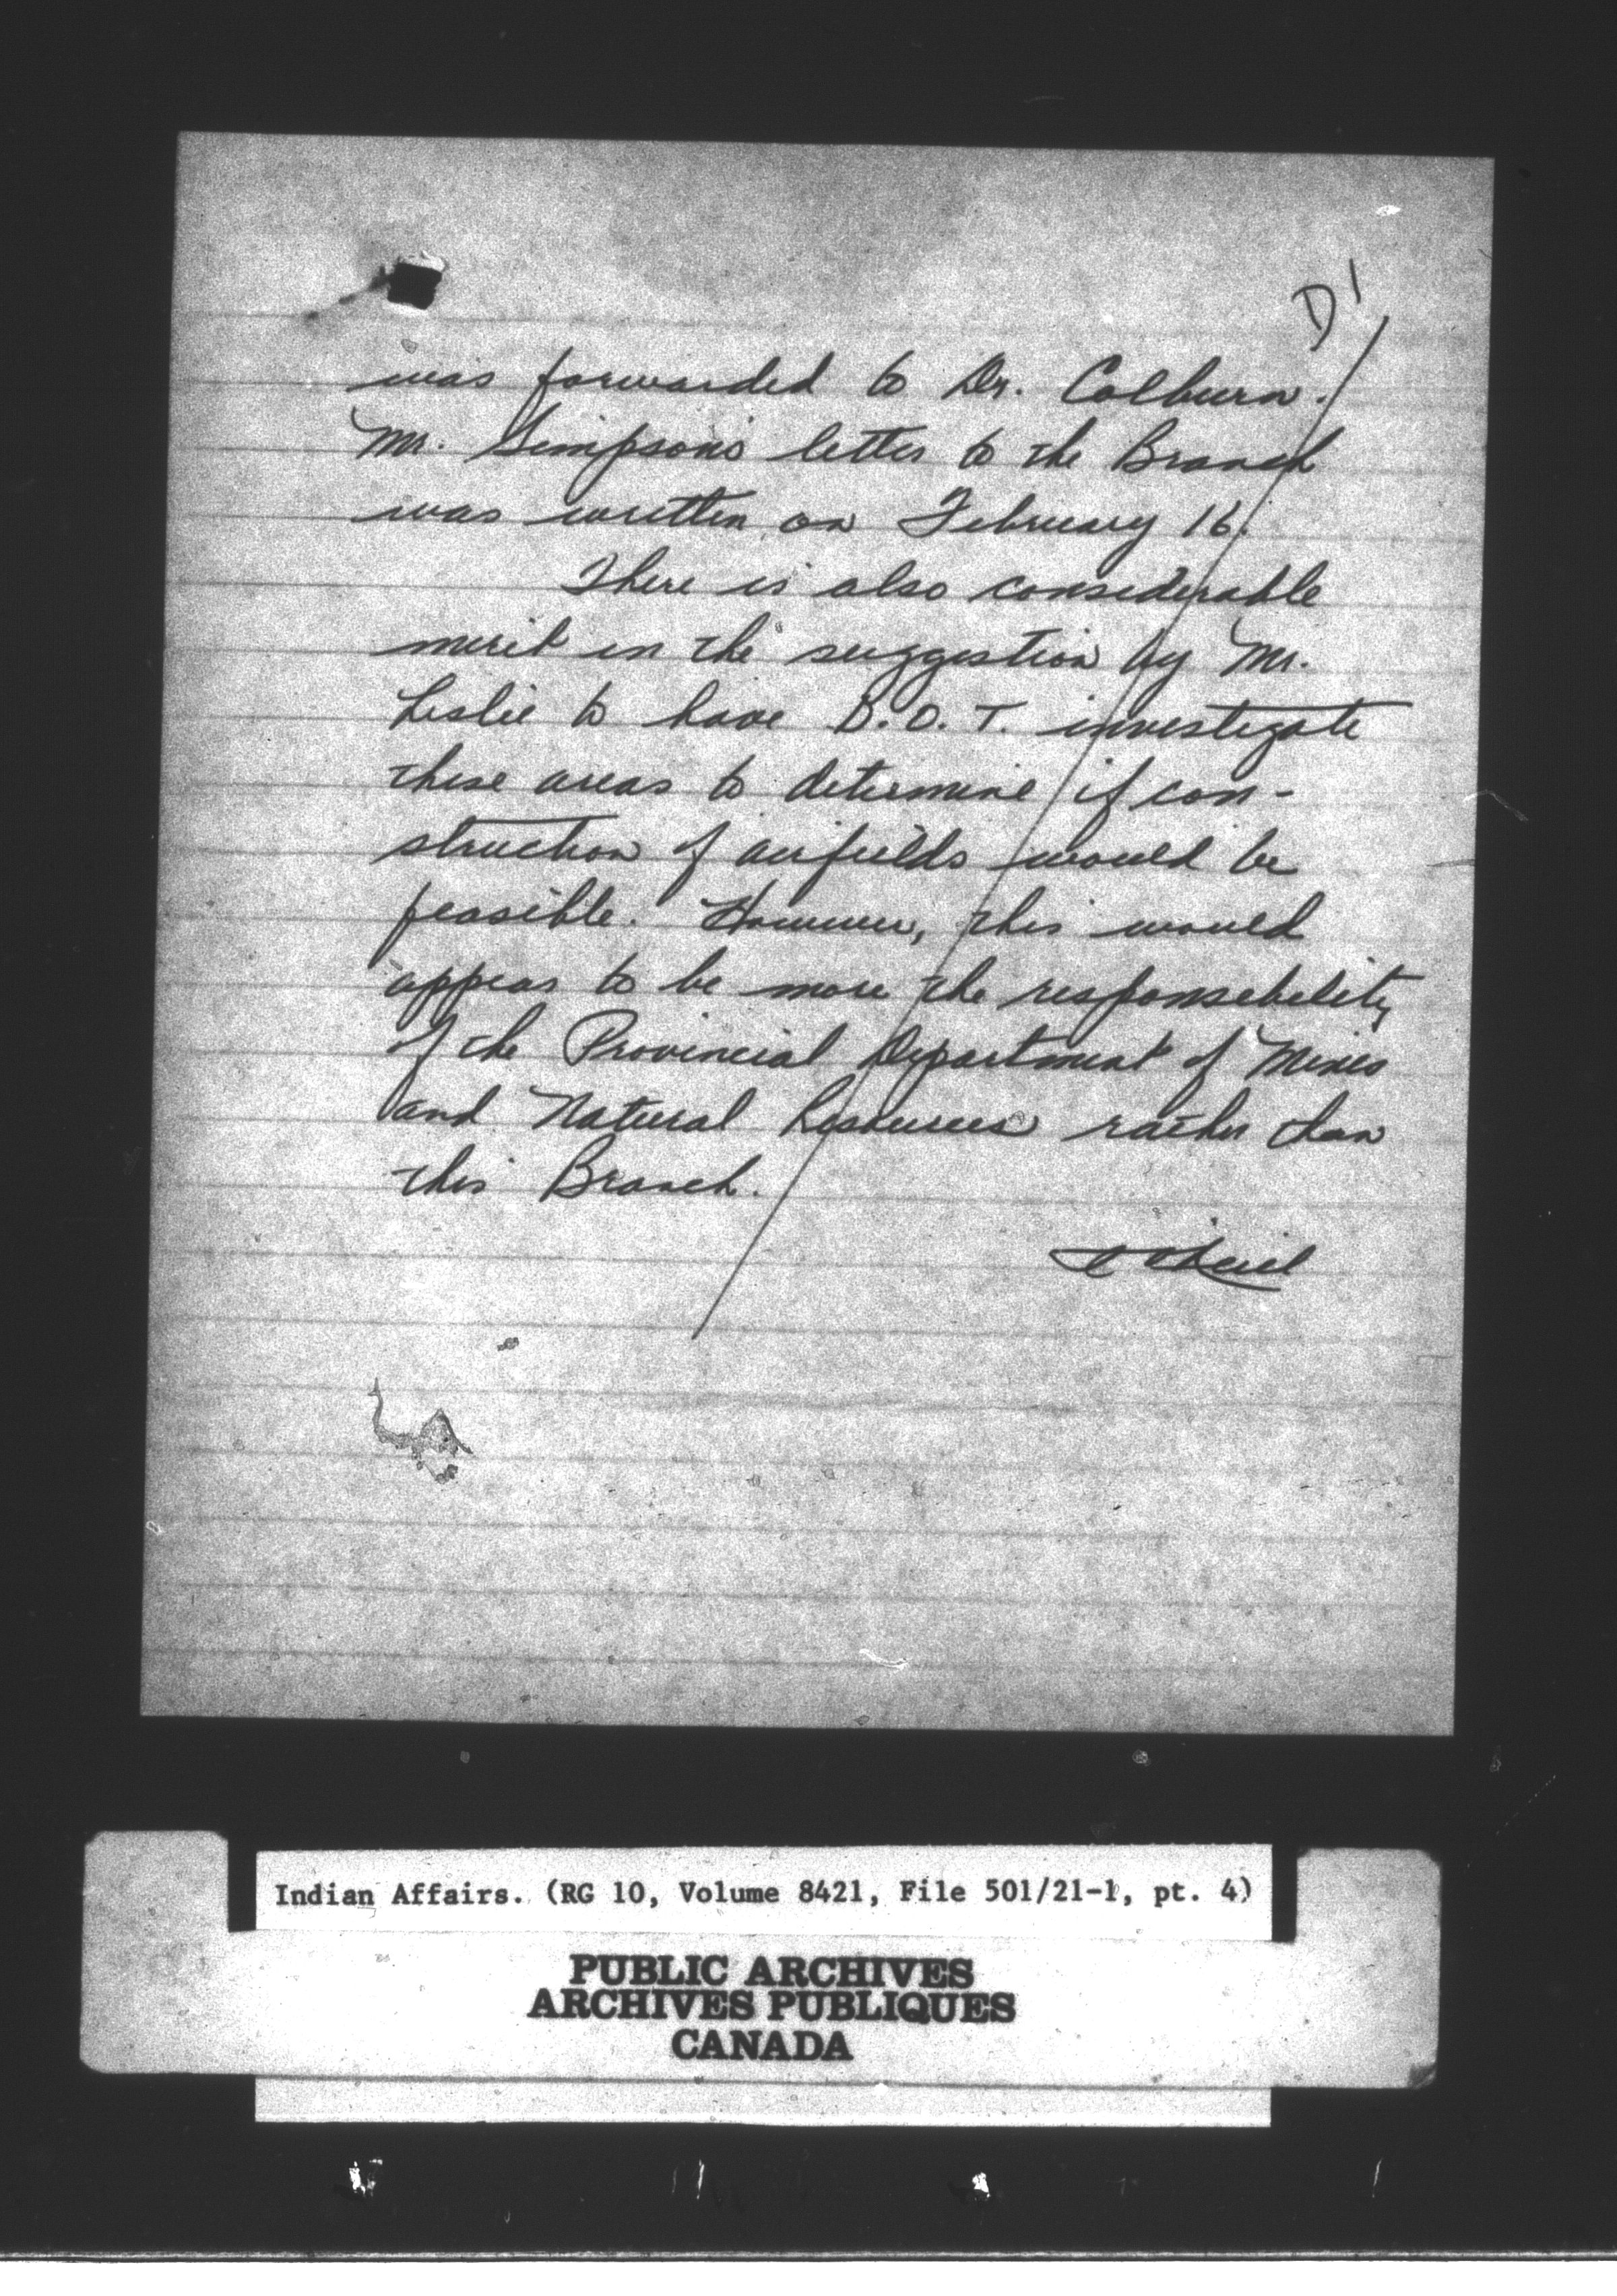 D1
was forwarded to Dr. Colburn.
Mr. Simpson's letter to the Branch
was written on February 16.
There is also considerable
merit in the suggestion by Mr.
Leslie to have D.O.T. investigate
these areas to determine if con-
struction of airfields would be
feasible. However, this would
appear to be more the responsibility
of the Provincial Department of Mines
and Natural Resources rather than
this Branch.
Indian Affairs. (RG 10, Volume 8421, File 501/21-1, pt. 4)
PUBLIC ARCHIVES
ARCHIVES PUBLIQUES
CANADA